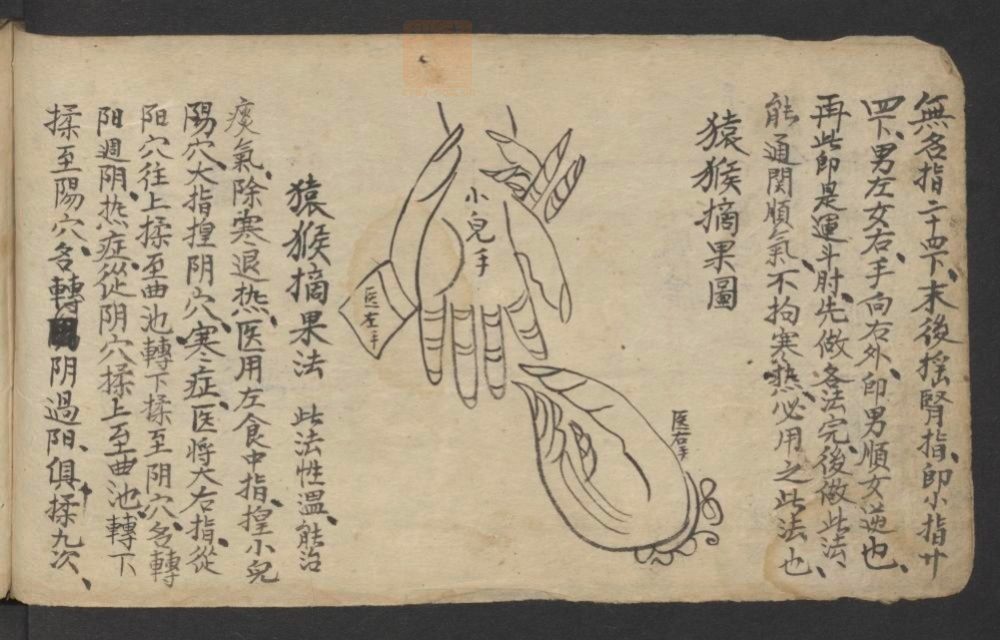 無名指二十四下、末後搖腎指、即小指廿
四下、男左女右、手向右外、即男順女逆也、
再此即是運斗肘、先做各法完、後做此法、
能通関順氣、不拘寒热、必用之此法也、
猿猴摘果圖
小兒手
医左手
医右手
猿猴摘果法　此法性溫、能治
痰氣、除寒退热、医用左食中指、揑小兒
陽穴、大指揑阴穴、寒症、医将大右指、從
阳穴往上揉至曲池、轉下揉至阴穴、名轉
阳過阴、热症、從阴穴揉上至曲池、轉下
揉至陽穴、名轉阴過阳、俱揉九次、